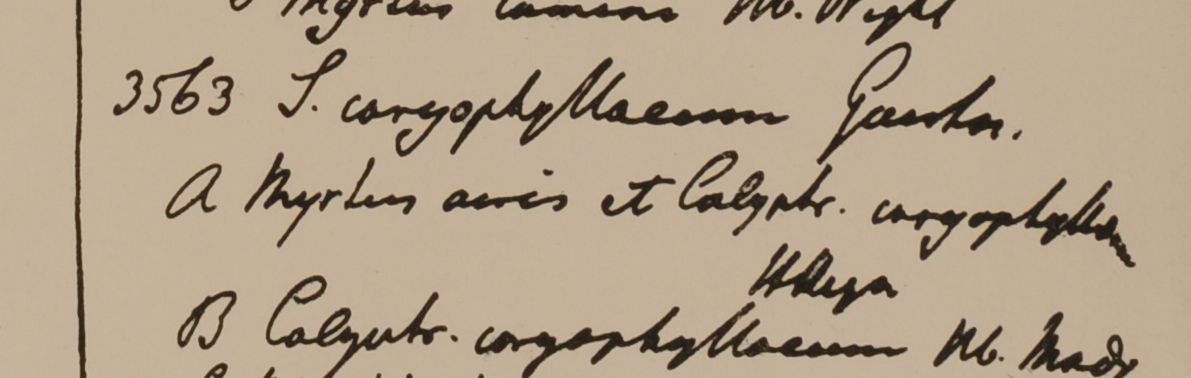 Myrtus cumini Hb. Wight
3563 S. caryophyllaeum Gaertn.
A Myrtus acris et Calyptr. caryophyllaeum
HBeng
B Calyptr. caryophyllaeum Hb. Madr